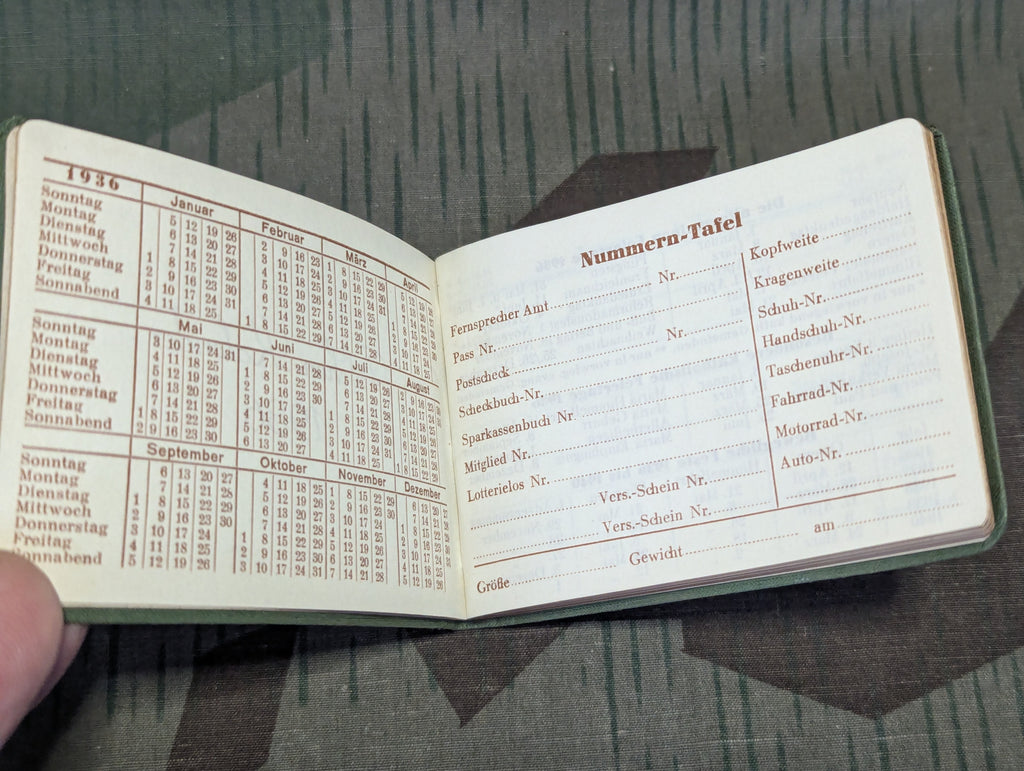 1936 Januar Februar März April
Sonntag 5 12 19 26 2 9 16 23 1 8 15 22 29 5 12 19 26
Montag 6 13 20 27 3 10 17 24 2 9 16 23 30 6 13 20 27
Dienstag 7 14 21 28 4 11 18 25 3 10 17 24 31 7 14 21 28
Mittwoch 1 8 15 22 29 5 12 19 26 4 11 18 25 1 8 15 22 29
Donnerstag 2 9 16 23 30 6 13 20 27 5 12 19 26 2 9 16 23 30
Freitag 3 10 17 24 31 7 14 21 28 6 13 20 27 3 10 17 24
Sonnabend 4 11 18 25 1 8 15 22 29 7 14 21 28 4 11 18 25
Mai Juni Juli August
Sonntag 3 10 17 24 31 7 14 21 28 5 12 19 26 2 9 16 23 30
Montag 4 11 18 25 1 8 15 22 29 6 13 20 27 3 10 17 24 31
Dienstag 5 12 19 26 2 9 16 23 30 7 14 21 28 4 11 18 25
Mittwoch 6 13 20 27 3 10 17 24 1 8 15 22 29 5 12 19 26
Donnerstag 7 14 21 28 4 11 18 25 2 9 16 23 30 6 13 20 27
Freitag 1 8 15 22 29 5 12 19 26 3 10 17 24 31 7 14 21 28
Sonnabend 2 9 16 23 30 6 13 20 27 4 11 18 25 1 8 15 22 29
September Oktober November Dezember
Sonntag 6 13 20 27 4 11 18 25 1 8 15 22 29 6 13 20 27
Montag 7 14 21 28 5 12 19 26 2 9 16 23 30 7 14 21 28
Dienstag 1 8 15 22 29 6 13 20 27 3 10 17 24 1 8 15 22 29
Mittwoch 2 9 16 23 30 7 14 21 28 4 11 18 25 2 9 16 23 30
Donnerstag 3 10 17 24 1 8 15 22 29 5 12 19 26 3 10 17 24 31
Freitag 4 11 18 25 2 9 16 23 30 6 13 20 27 4 11 18 25
Sonnabend 5 12 19 26 3 10 17 24 31 7 14 21 28 5 12 19 26
Nummern-Tafel
Fernsprecher Amt Nr.
Pass Nr.
Postscheck Nr.
Scheckbuch-Nr.
Sparkassenbuch Nr
Mitglied Nr.
Lotterielos Nr.
Vers.-Schein Nr.
Vers.-Schein Nr.
Kopfweite
Kragenweite
Schuh-Nr.
Handschuh-Nr.
Taschenuhr-Nr.
Fahrrad-Nr.
Motorrad-Nr.
Auto-Nr.
Größe Gewicht am